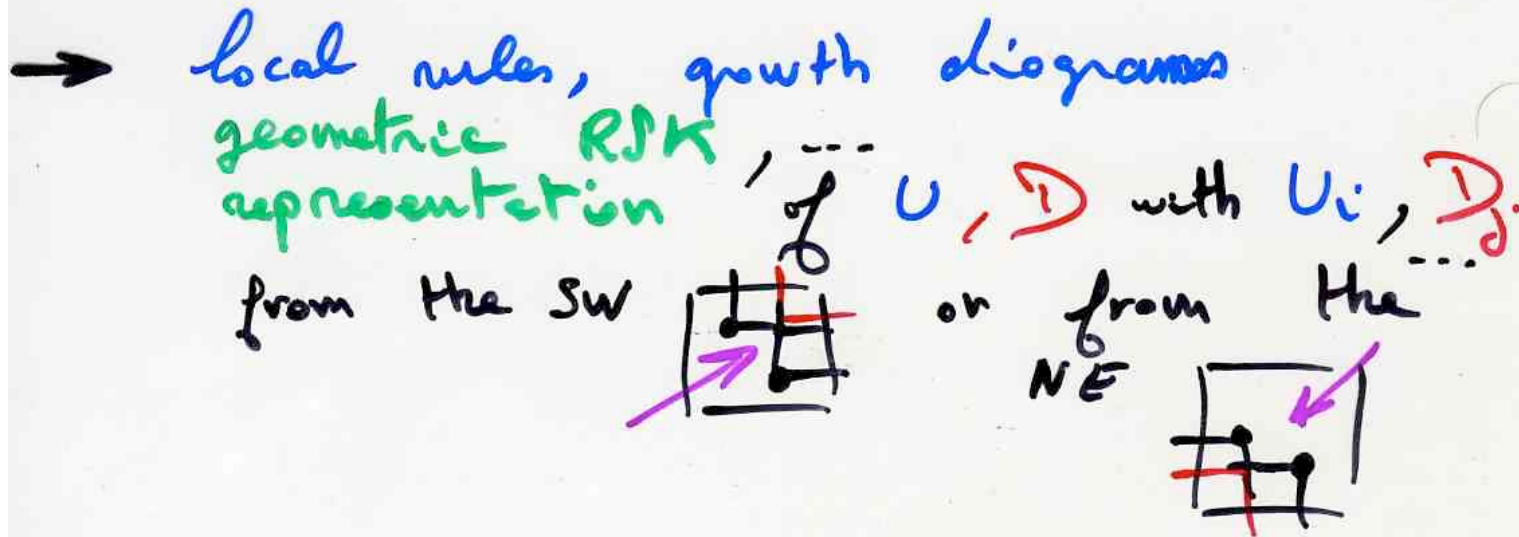 → local rules, growth diagrams
geometric RSK, ---
representation of U, D with Ui, Dj, ---
from the SW or from the
NE